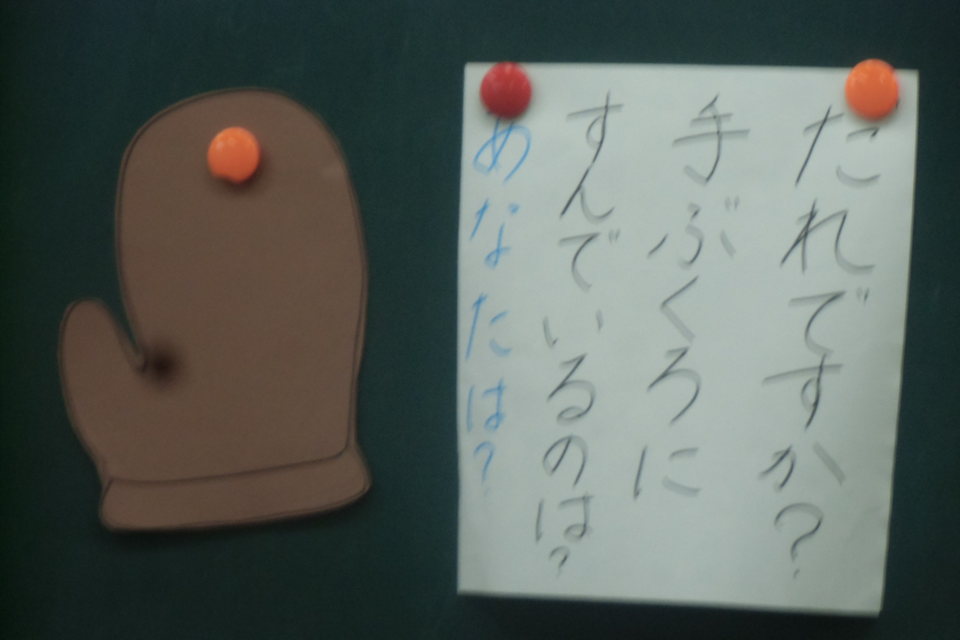 だれですか?
手ぶくろに
すんでいるのは?
あなたは?